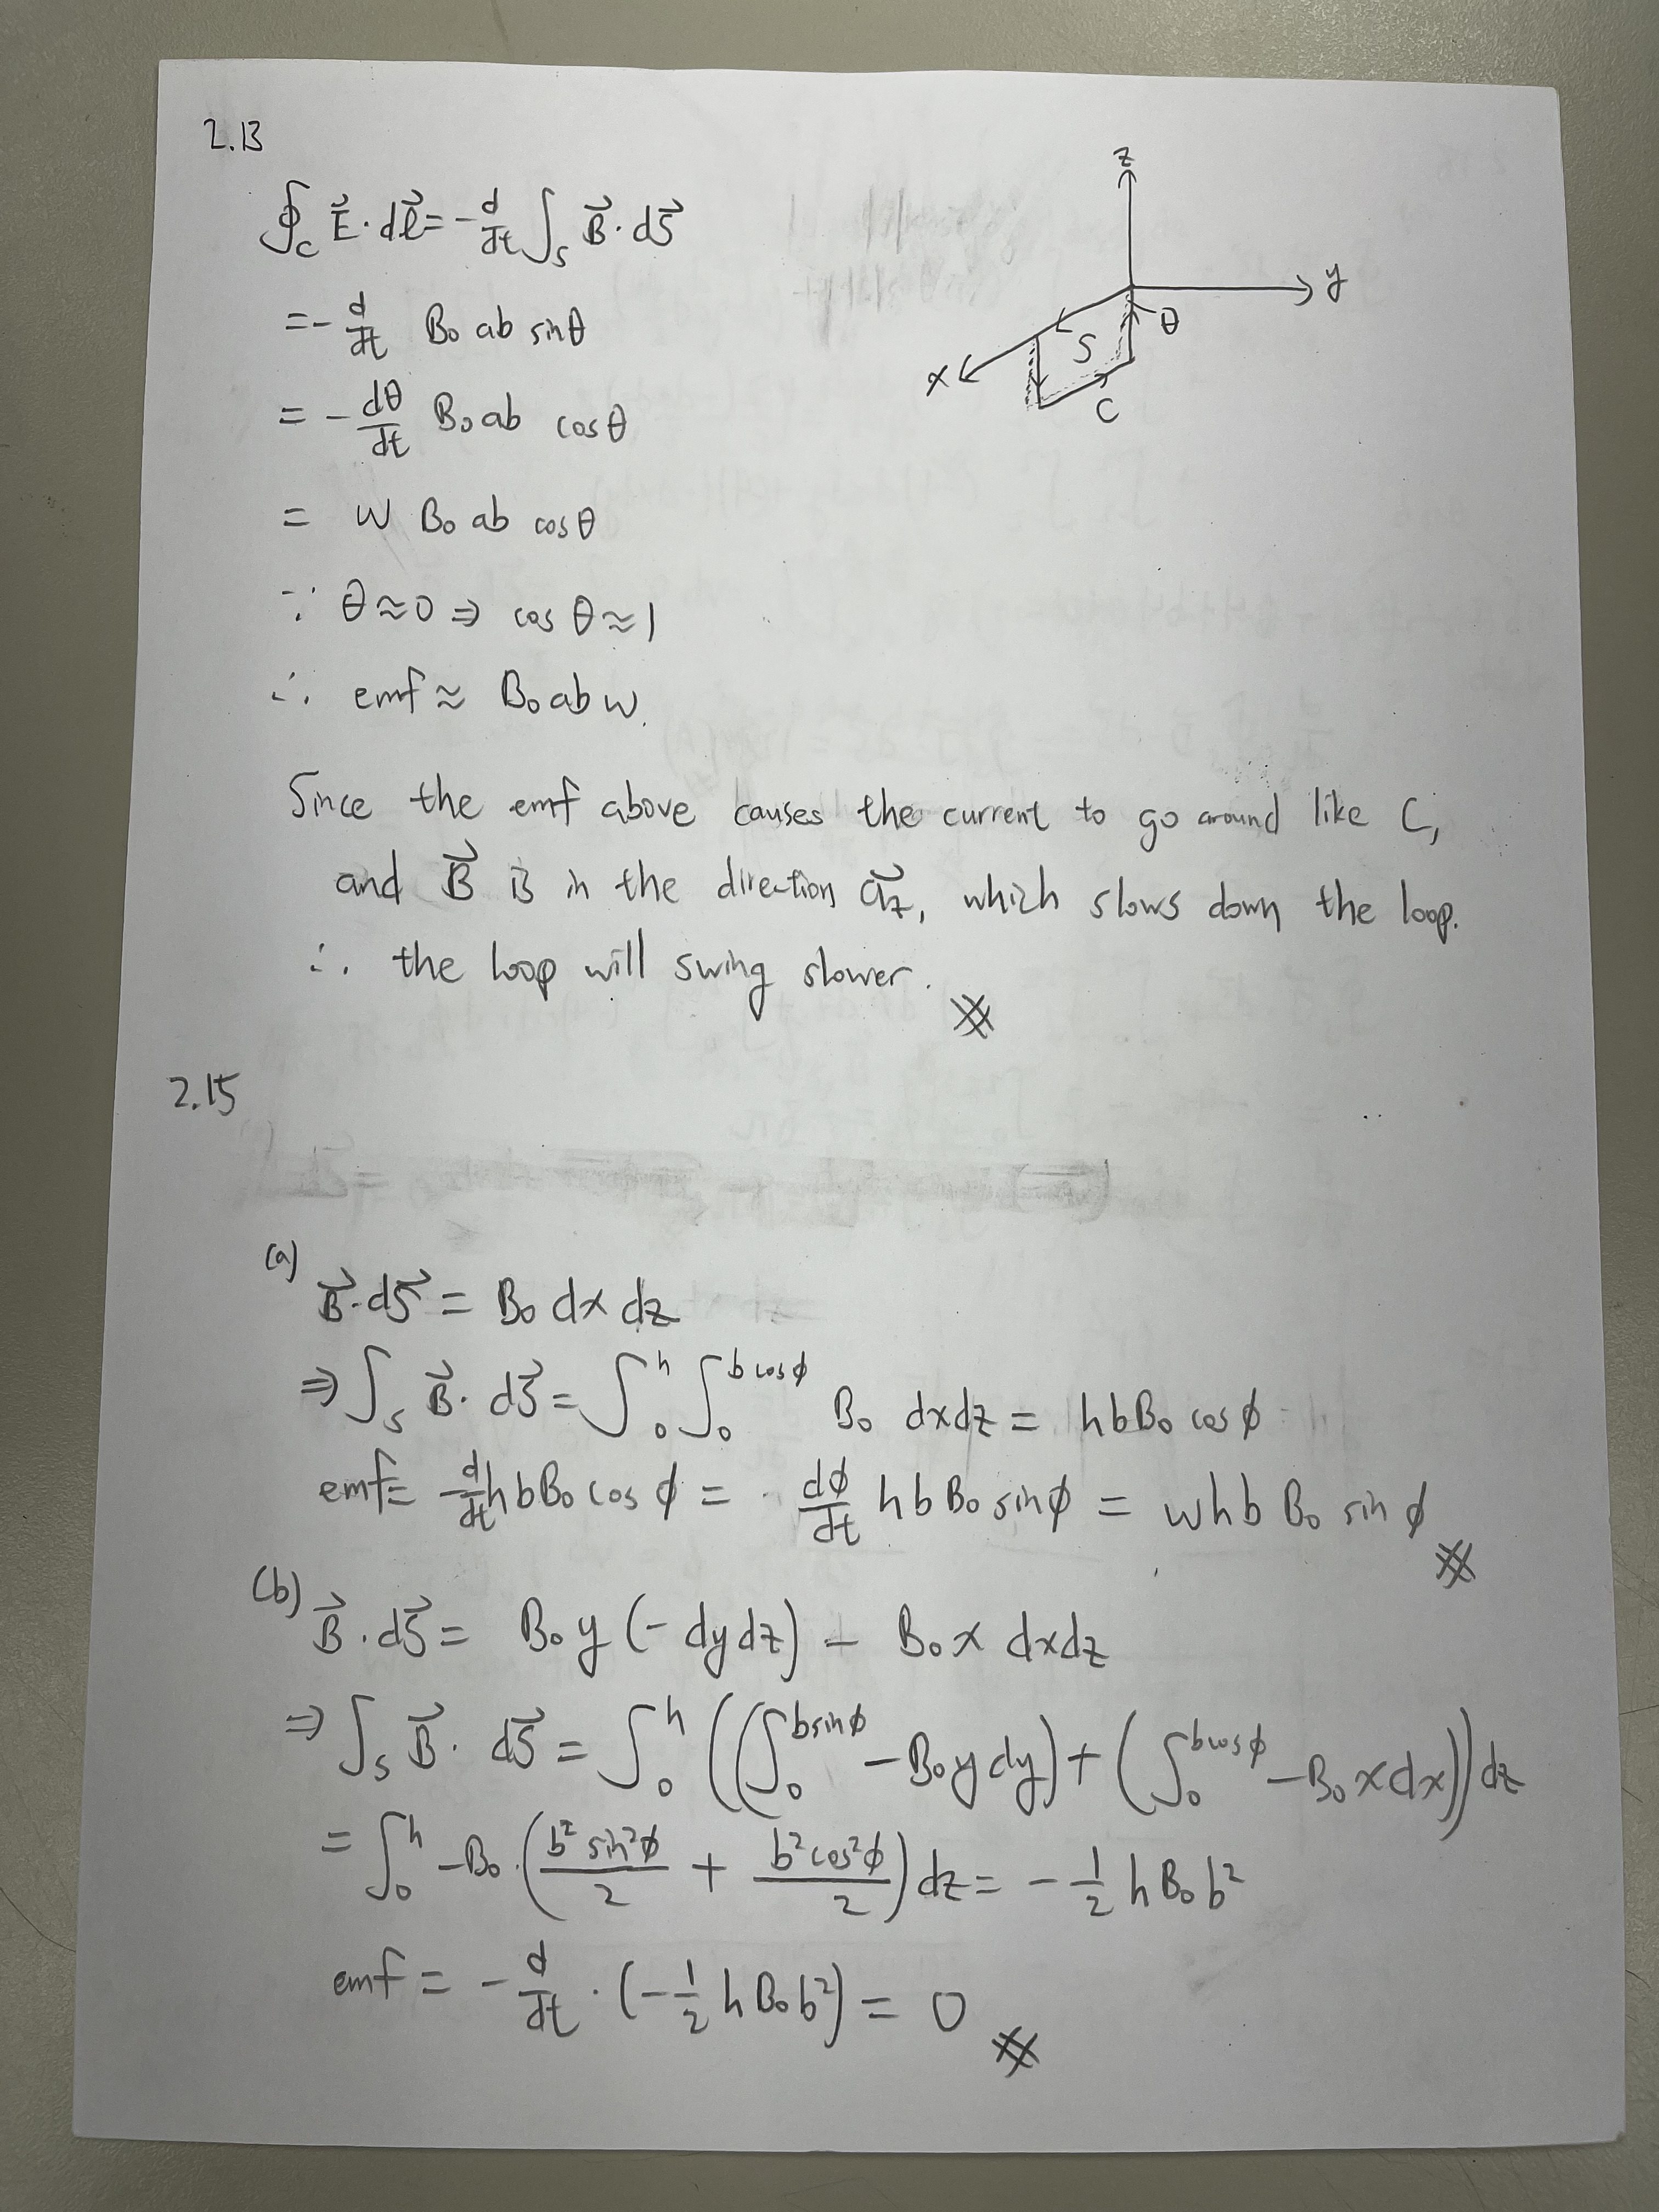 2.13
∮_C E⃗ · dl⃗ = - d/dt ∫_S B⃗ · dS⃗
= - d/dt B₀ ab sinθ
= - dθ/dt B₀ ab cosθ
= w B₀ ab cosθ
∵ θ≈0 ⇒ cos θ≈1
∴ emf ≈ B₀ ab w.
z
y
x
θ
S
C
Since the emf above causes the current to go around like C,
and B⃗ is in the direction a⃗_z, which slows down the loop.
∴ the loop will swing slower.
2.15
(a)
B⃗·dS⃗ = B₀ dx dz
⇒ ∫_S B⃗ · dS⃗ = ∫₀^h ∫₀^{b cosϕ} B₀ dxdz = hbB₀ cosϕ
emf = -d/dt hbB₀ cosϕ = dϕ/dt hbB₀ sinϕ = whbB₀ sinϕ
(b) B⃗·dS⃗ = B₀y(-dydz) - B₀x dxdz
⇒ ∫_S B⃗ · dS⃗ = ∫₀^h ((∫₀^{bsinϕ} -B₀ydy) + (∫₀^{bcosϕ} -B₀xdx))dz
= ∫₀^h -B₀·(b²sin²ϕ/2 + b²cos²ϕ/2)dz = -1/2 hB₀b²
emf = - d/dt · (-1/2 hB₀b²) = 0